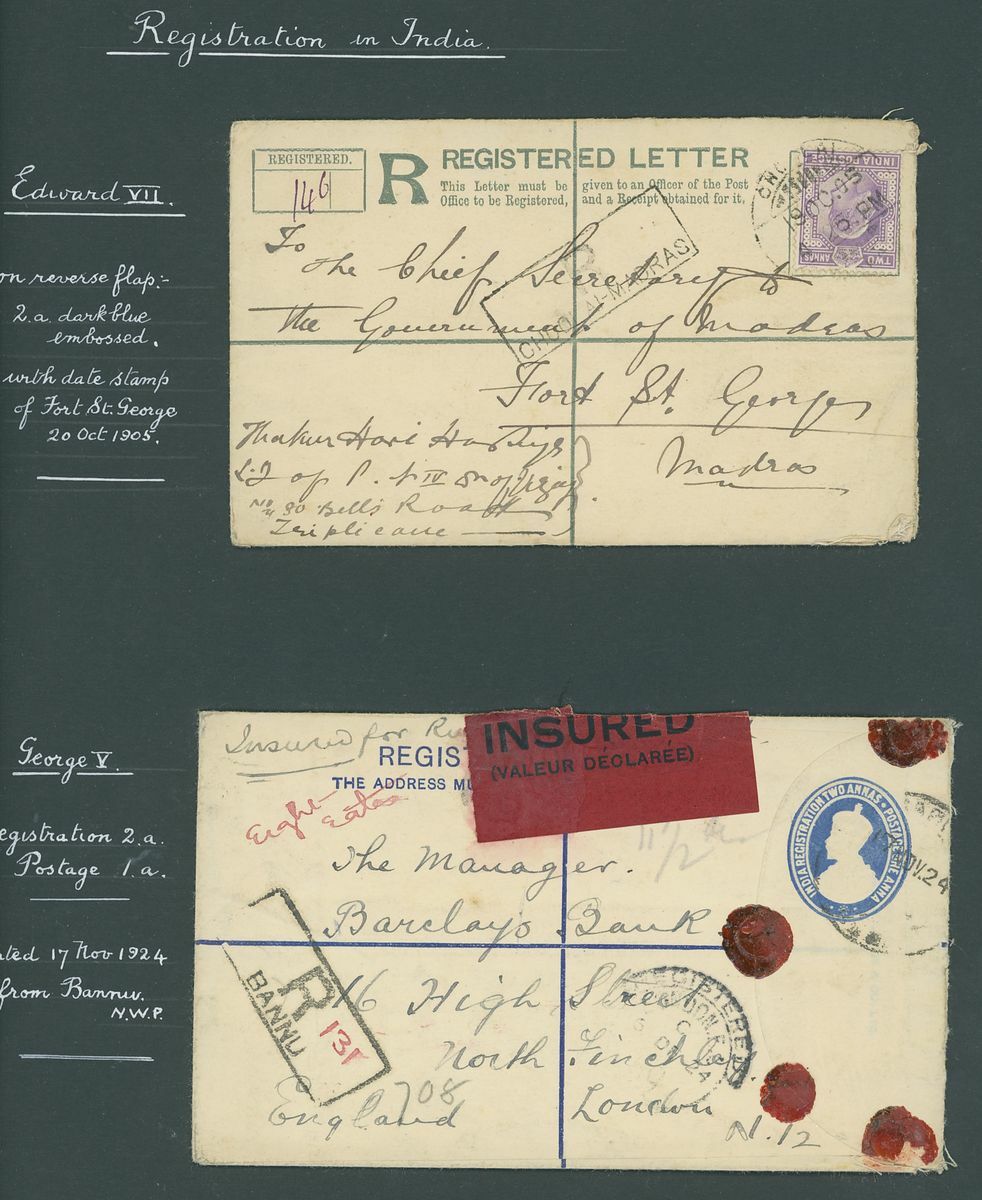 Registration in India.
Edward VII.
on reverse flap:-
2.a. dark blue
embossed.
with date stamp
of Fort St. George
20 Oct 1905.
REGISTERED.
146
R
REGISTERED LETTER
This Letter must be given to an Officer of the Post
Office to be Registered, and a Receipt obtained for it.
INDIA POSTAGE
TWO ANNAS
19 OC 05
To
The Chief Secretary to
the Government of Madras
Fort St. George
Madras
R
MADRAS
Thakur Hari
No 80 Bells Road
Triplicane
George V.
egistration 2.a.
Postage 1.a.
ted 17 Nov 1924
from Bannu.
N.W.P.
Insured for Ru
REGIS
THE ADDRESS MU
INSURED
(VALEUR DÉCLARÉE)
Eight
INDIA REGISTRATION TWO ANNAS · POSTAGE ONE ANNA
NOV. 24
The Manager.
Barclays Bank
16 High Street
North Finchley
London
N. 12
England
R
BANNU
131
708
REGISTERED
LONDON
24